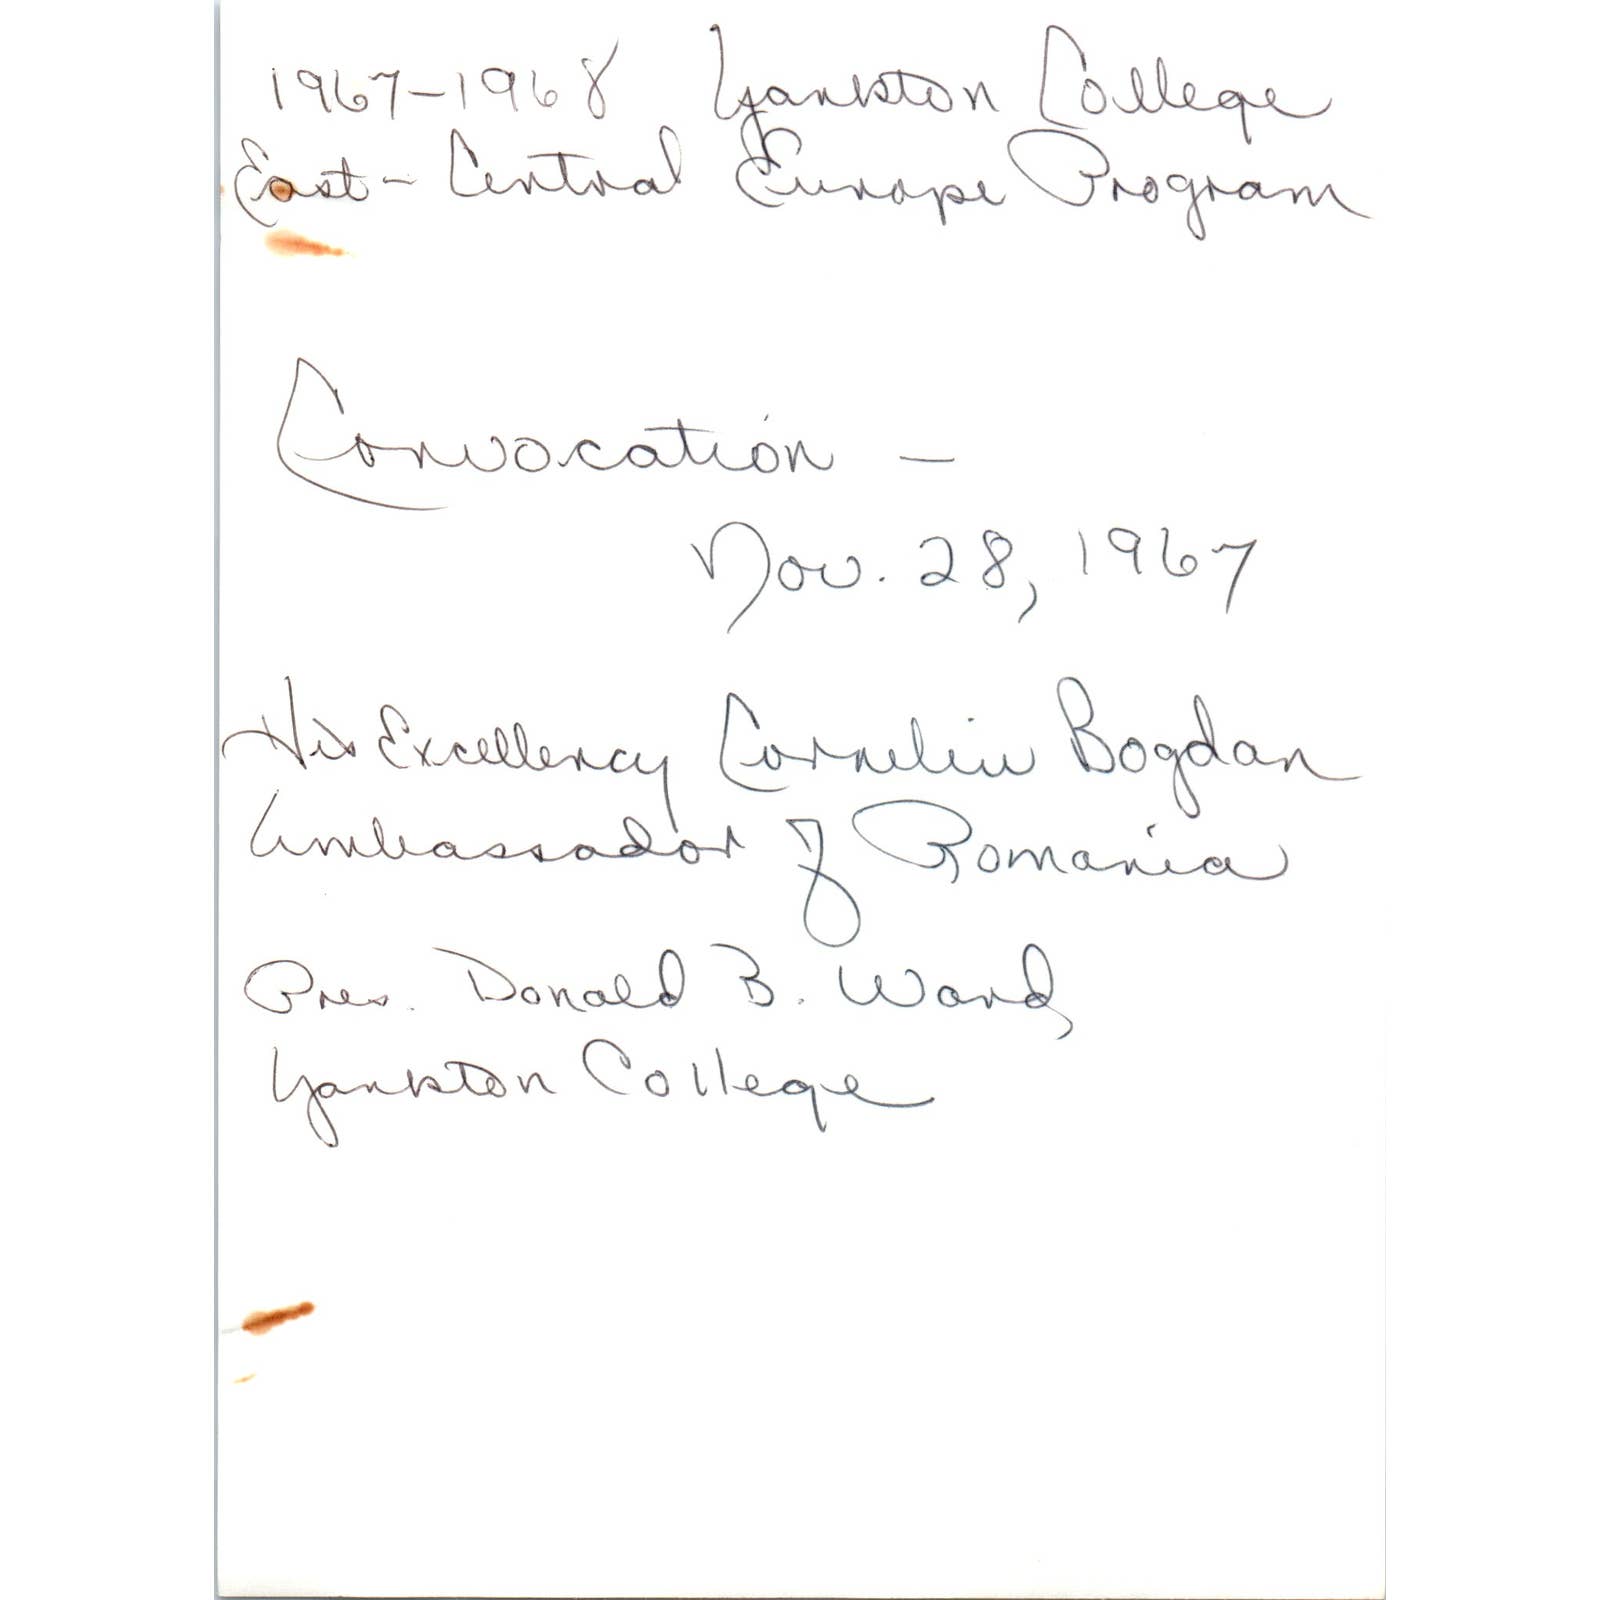 1967-1968 Yankton College
East-Central Europe Program
Convocation -
Nov. 28, 1967
His Excellency Corneliu Bogdan
Ambassador of Romania
Pres. Donald B. Ward,
Yankton College